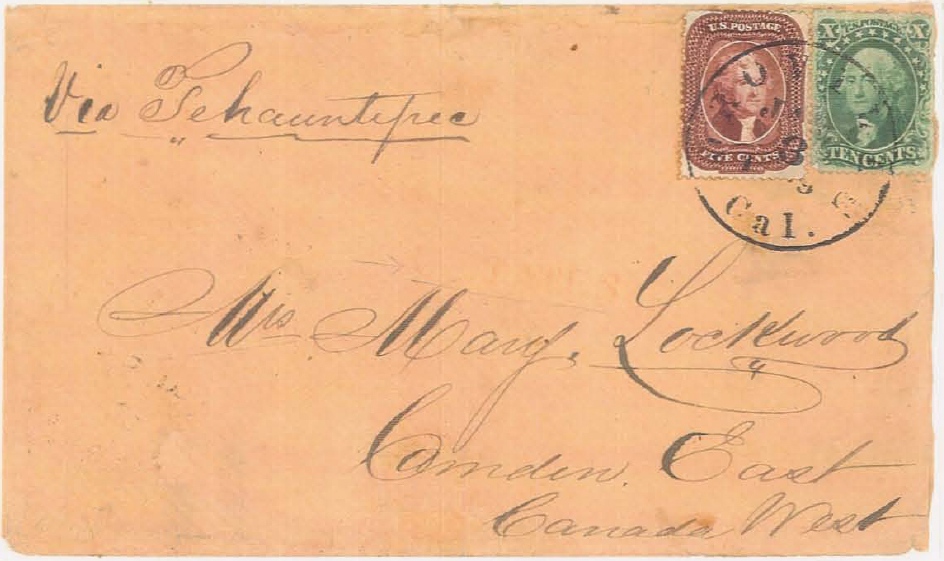 U.S. POSTAGE
FIVE CENTS
X U.S. POSTAGE X
TEN CENTS
Cal.
Via Tehauntepec
Mrs Mary Lockwood
Camden East
Canada West